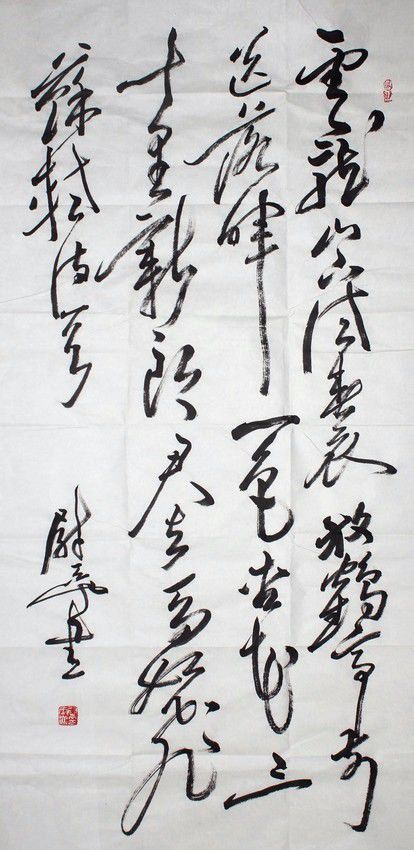 雲龍山下試春衣放鶴亭前
送落暉一色杏花三
十里新郎君去馬如飛
蘇軾詩
書